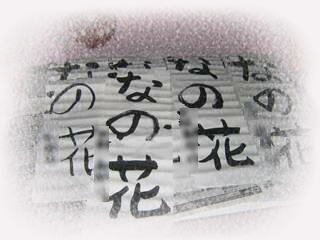 なの花
なの花
なの花
なの花